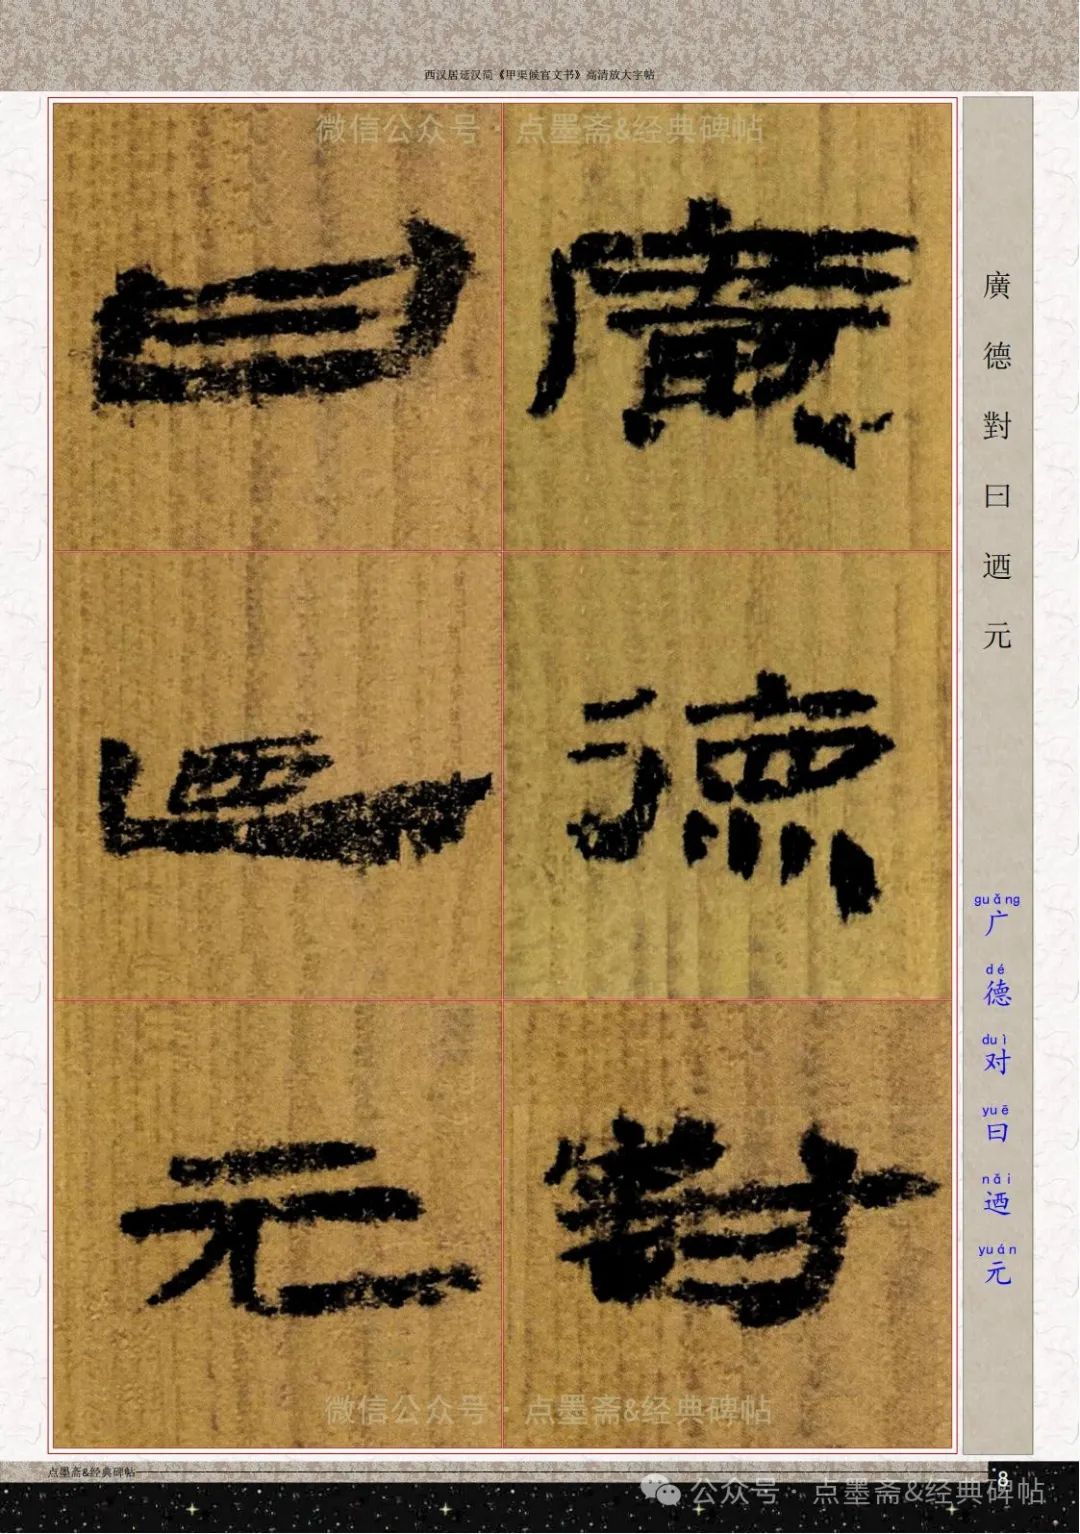 西汉居延汉简《甲渠候官文书》高清放大字帖
微信公众号·点墨斋&经典碑帖
廣德對
曰迺元
廣德對曰迺元
guǎng
广
dé
德
duì
对
yuē
曰
nǎi
迺
yuán
元
微信公众号·点墨斋&经典碑帖
点墨斋&经典碑帖
8
公众号·点墨斋&经典碑帖